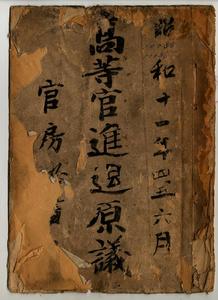 昭和十一年四五六月
高等官進退原議
官房